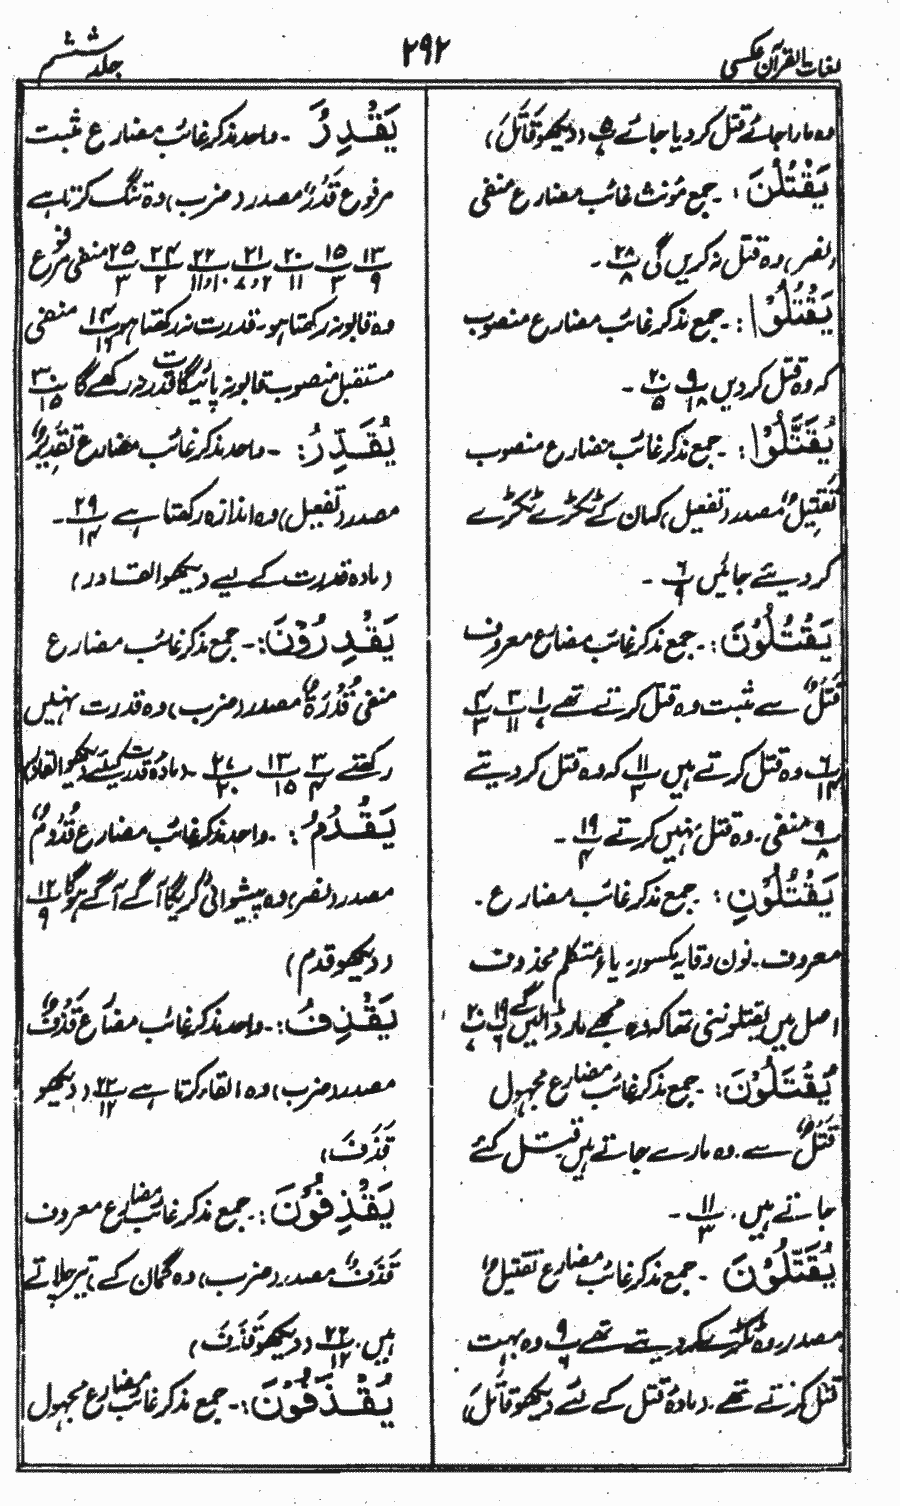 لغات القرآن عکسی
۲۹۲
جلد ششم
وہ مارا جائے قتل کر دیا جائے ۵/۶ (دیکھو قَاتَلَ)
یَقْتُلْنَ : ۔ جمع مؤنث غائب مضارع منفی
(نصر) وہ قتل نہ کریں گی ۲۸/۸ ۔
یَقْتُلُوْا : ۔ جمع مذکر غائب مضارع منصوب
کہ وہ قتل کر دیں ۹/۱۸ ۲۰/۵ ۔
یُقَتَّلُوْا : ۔ جمع مذکر غائب مضارع منصوب
تَقْتِیْلٌ مصدر (تفعیل) کہ ان کے ٹکڑے ٹکڑے
کر دیئے جائیں ۶/۹ ۔
یَقْتُلُوْنَ : ۔ جمع مذکر غائب مضارع معروف
قَتْلٌ سے مثبت وہ قتل کرتے تھے ۱/۷ ۳/۱۱ ۴/۳
۶/۱۴ وہ قتل کرتے ہیں ۱۱/۳ کہ وہ قتل کر دیتے
۹/۸ منفی ۔ وہ قتل نہیں کرتے ۱۹/۴ ۔
یَقْتُلُوْنِ : ۔ جمع مذکر غائب مضارع ۔
معروف ۔ نون وقایہ مکسور یاءِ متکلم محذوف
اصل میں یقتلوننی تھا کہ وہ مجھے مار ڈالیں گے ۱۹/۶ ۲۰/۷
یُقْتَلُوْنَ : ۔ جمع مذکر غائب مضارع مجہول
قَتْلٌ سے ۔ وہ مارے جاتے ہیں قتل کئے
جاتے ہیں ۔ ۱۱/۳ ۔
یُقَتِّلُوْنَ ۔ جمع مذکر غائب مضارع تَقْتِیْلٌ
مصدر ۔ وہ ٹکڑے ٹکڑے کر دیتے تھے ۹/۶ وہ بہت
قتل کرتے تھے ۔ (مادہ قتل کے لئے دیکھو قَاتَلَ)
یَقْدِرُ ۔ واحد مذکر غائب مضارع مثبت
مرفوع قَدْرٌ مصدر (ضرب) وہ تنگ کرتا ہے
۱۳/۹ ۱۵/۳ ۲۰/۱۱ ۲۱/۲و۷ ۲۲/۱۰و۱۱ ۲۴/۲ ۲۵/۳ منفی مرفوع
وہ قابو نہ رکھتا ہو ۔ قدرت نہ رکھتا ہو ۱۴/۱۶ منفی
مستقبل منصوب قابو نہ پائیگا قدرت نہ رکھے گا ۳۰/۱۵
یُقَدِّرُ : ۔ واحد مذکر غائب مضارع تَقْدِیْرٌ
مصدر (تفعیل) وہ اندازہ رکھتا ہے ۲۹/۱۴ ۔
(مادہ قدرت کے لیے دیکھو القادر)
یَقْدِرُوْنَ : ۔ جمع مذکر غائب مضارع
منفی قُدْرَۃٌ مصدر (ضرب) وہ قدرت نہیں
رکھتے ۳/۴ ۱۳/۱۵ ۲۷/۲۰ ۔ (مادہ قدرت کیلئے دیکھو القادر)
یَقْدُمُ : ۔ واحد مذکر غائب مضارع قُدُوْمٌ
مصدر (نصر) وہ پیشوائی کریگا آگے آگے ہوگا ۱۲/۹
(دیکھو قدم)
یَقْذِفُ : ۔ واحد مذکر غائب مضارع قَذْفٌ
مصدر (ضرب) وہ القاء کرتا ہے ۲۲/۱۲ (دیکھو
قَذَفَ)
یَقْذِفُوْنَ : ۔ جمع مذکر غائب مضارع معروف
قَذْفٌ مصدر (ضرب) وہ گمان کے تیر چلاتے
ہیں ۔ ۲۲/۱۲ (دیکھو قَذَفَ)
یُقْذَفُوْنَ : ۔ جمع مذکر غائب مضارع مجہول